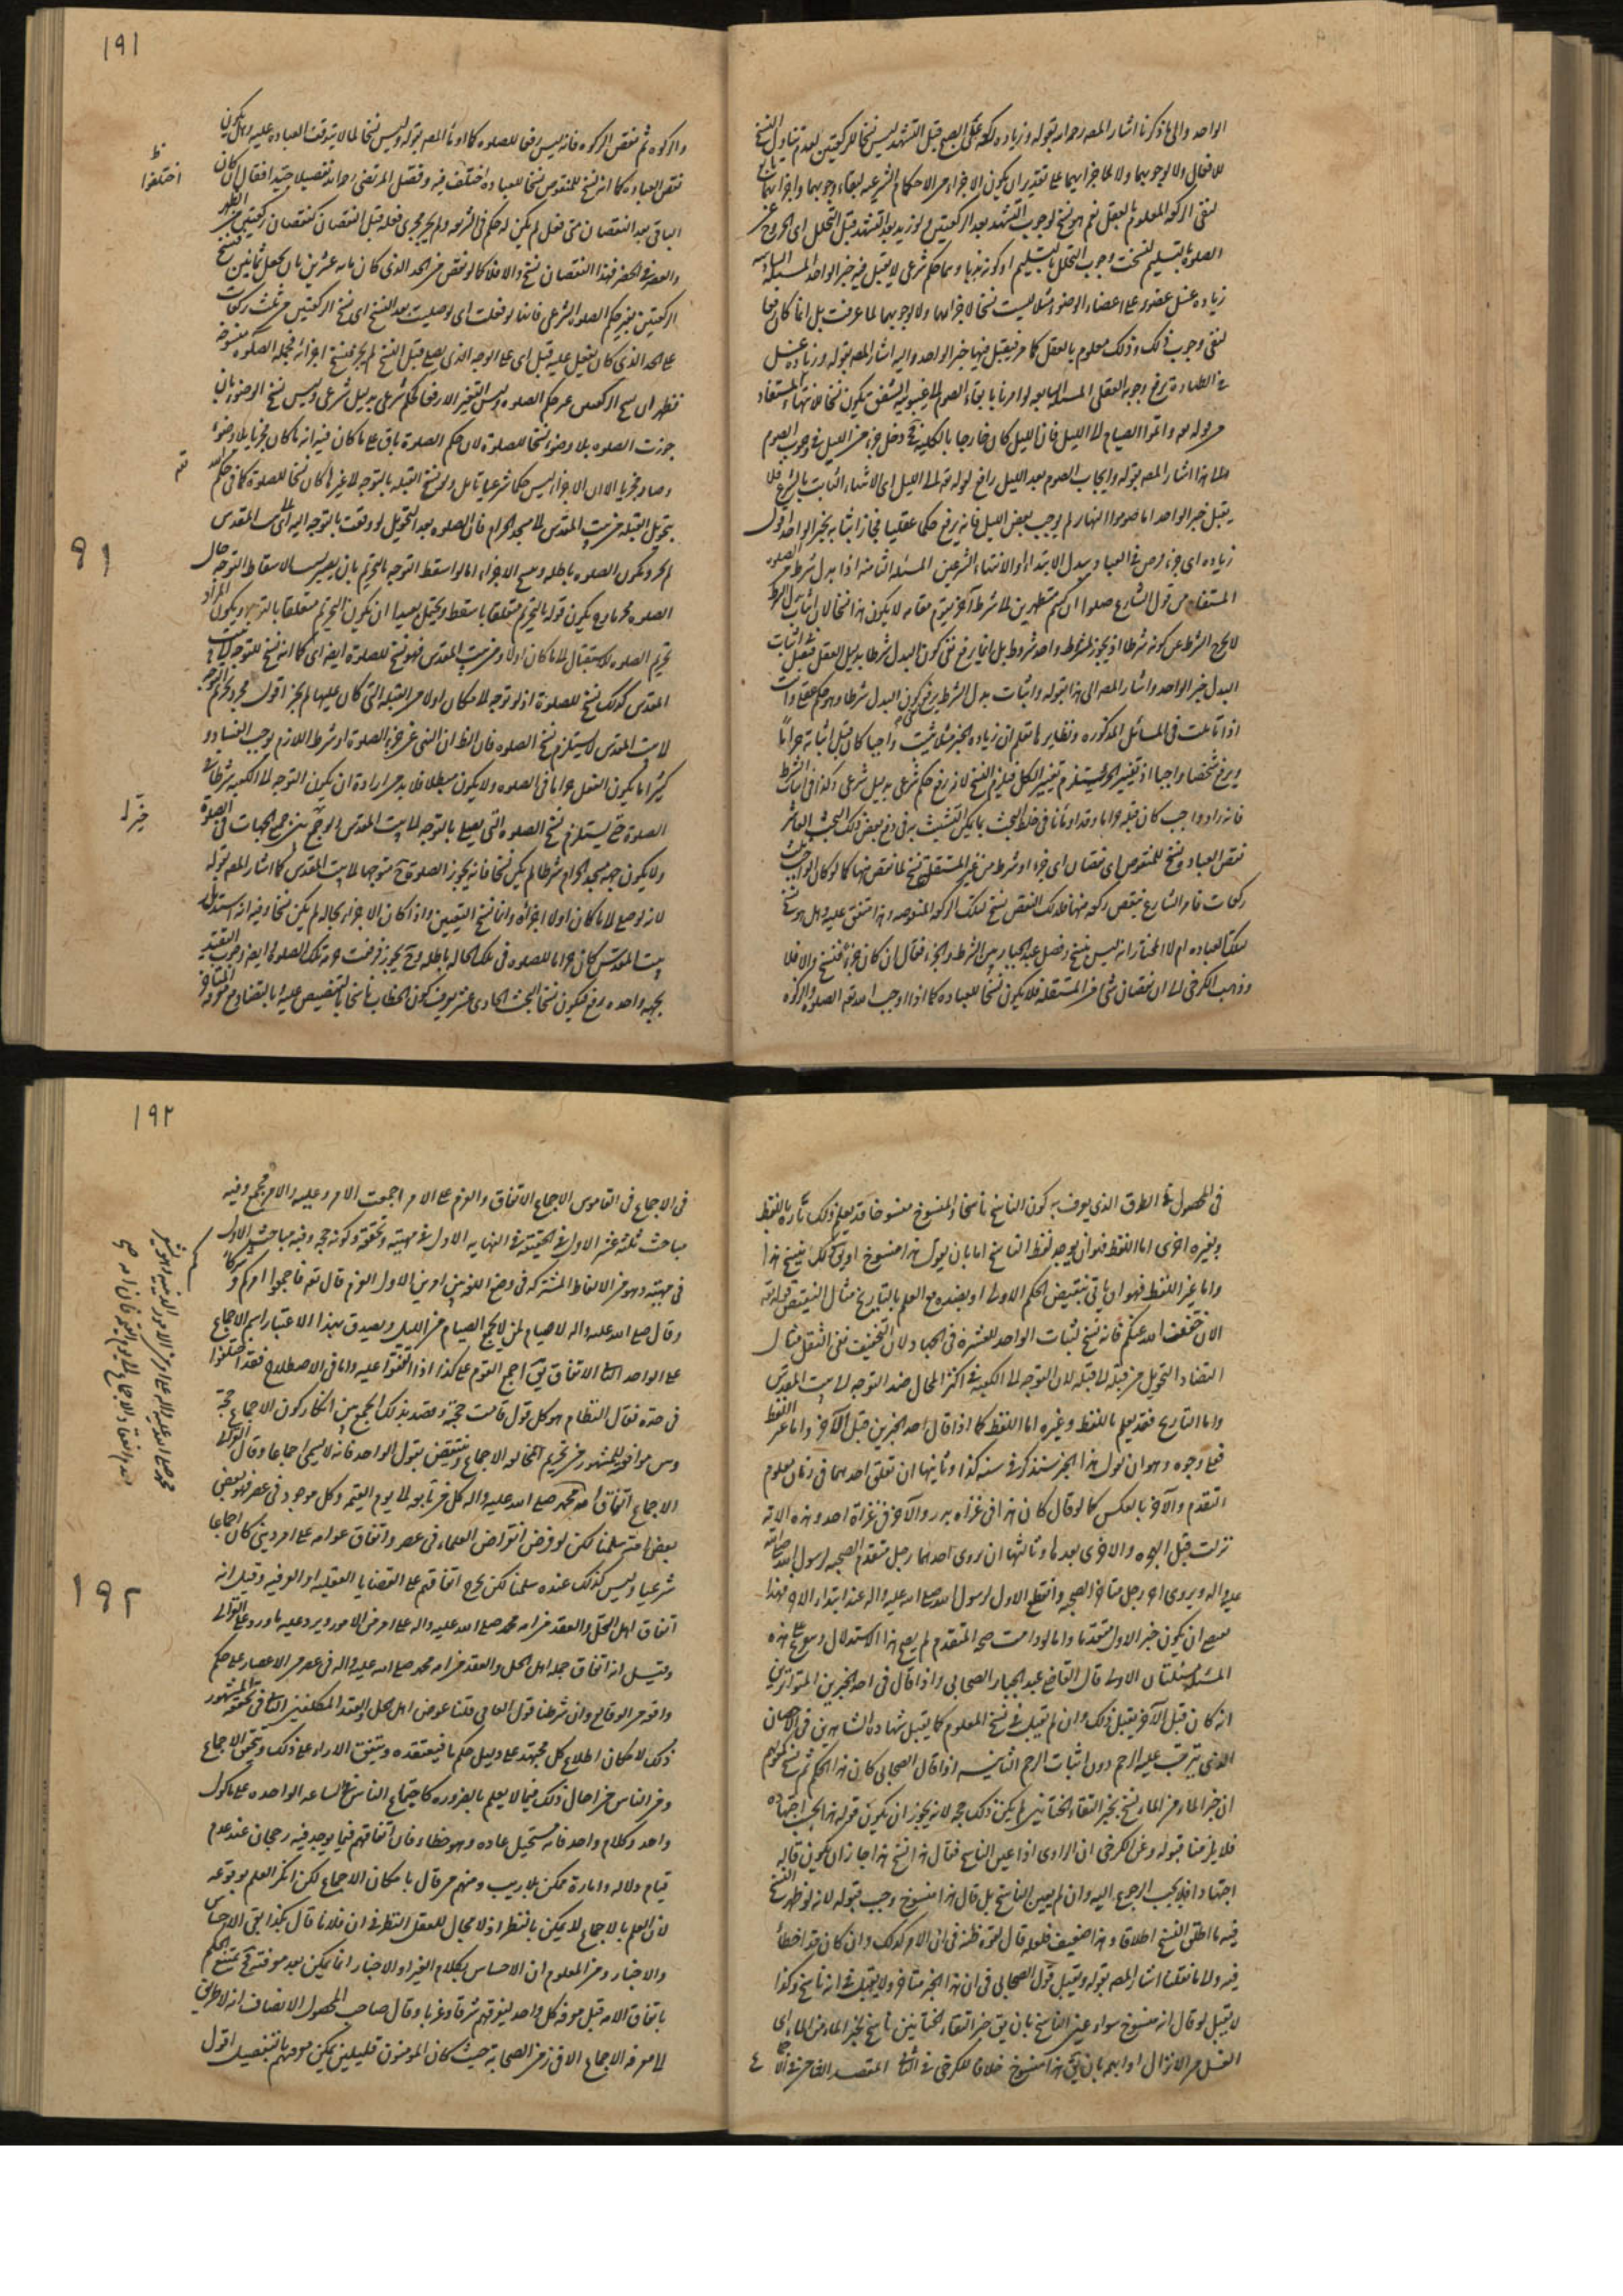 الواحد والى ما ذكرنا اشار المصرحه الله بقوله وزيادة ركعة على الصبح قبل التشهد ليس نسخا للركعتين لعدم تناول النسخ
للافعال ولا لوجوبهما ولا لاجزائهما على تقدير ان يكون الاجزاء من الاحكام الشرعيه لبقاء وجوبهما واجزائهما
لنفى الركعه المعلوم بالعقل نعم هو نسخ لوجوب التشهد بعد الركعتين ولو زيد بعد التشهد قبل التحلل اى الخروج عن
الصلوة بالتسليم لنسخت وجوب التحلل بالتسليم او كونه ندبا وهما حكم شرعى لا يقبل فيه خبر الواحد المسئلة السابعه
زياده غسل عضو على اعضاء الوضوء مثلا ليست نسخا لاجزائهما ولا لوجوبهما لما عرفت بل انما كان رفعا
لنفى وجوب ذلك وذلك معلوم بالعقل كما مر فيقبل فيها خبر الواحد واليه اشار المصر بقوله وزيادة غسل
فى الطهارة يرفع وجوبه العقلى
من قوله تعه واتموا الصيام الى الليل فان الليل كان خارجا بالكليه دخل جزء من الليل فى وجوب الصوم
والى هذا اشار المصر بقوله وايجاب الصوم بعد الليل رافع لقوله تعه الى الليل اى لا شفاء الثابت بالشرع فلا
يقبل خبر الواحد اما صوموا النهار لم يوجب بعض الليل فانه يرفع حكما عقليا فجاز اثباته بخبر الواحد اقول
المستفاد من قول الشارع صلوا ان كنتم متطهرين لما شرط آخر يقوم مقامه لا يكون هذا نسخا لان اثبات بدل الشرط
لا يخرج الشرط عن كونه شرطا اذ يجوز لمشروط واحد شروط بل انما يرفع نفى كون البدل شرطا بدليل العقل فيقبل اثبات
البدل بخبر الواحد واشار المصر الى هذا بقوله واثبات بدل الشرط يرفع نفى كون البدل شرطا وهو حكم عقلى وانت
اذا تاملت فى المسائل المذكوره ونظايرها تعلم ان زياده الجزء مثلا يثبت واجبا كان قبل اثباته حراما
ويرفع شخصا واجبا اذ تغيير الجزء يستلزم تغيير الكل فيلزم النسخ لانه رفع حكم شرعى بدليل شرعى وكذا فى اثبات الشرط
نقص العبادة نسخ للمنقوص اى نقصان اى جزء او شرط من غير المستقلة نسخ لما نقص منها كما لو كان الواجب ثلث
ركعات فامر الشارع بنقص ركعه منها فذلك النقص نسخ لتلك الركعه المنقوصه وهذا متفق عليه وهل هو نسخ
لتلك العباده ام لا المختار انه ليس بنسخ وفصل عبد الجبار بين الشرط والجزء فقال ان كان جزءا فنسخ والا فلا
وذهب الكرخى الى ان نقصان شئ من المستقلة فلا يكون نسخا للعباده كما اذا اوجب الله تعه الصلوة والزكوه
١٩١
والزكوه ثم نقص الزكوه فانه ليس رفعا للصلوه كما اومأ المصر بقوله وليس نسخا لما لا يتوقف العباده عليه وهل يكون
نقص العباده كما انه نسخ للمنقوص نسخا للعباده اختلف فيه وفصل المرتضى رحمه الله تفصيلا جيدا فقال ان كان
اختلفوا
ظ
الباقى بعد النقصان متى فعل لم يكن له حكم فى الشرعه ولم يجر مجرى فعله قبل النقصان كنقصان ركعتين من الظهر
والعصر فى الحضر فهذا النقصان نسخ والا فلا كما لو نقص من الحد الذى كان مايه عشرين بان يجعل ثمانين
الركعتين يغير حكم الصلوه الشرعى فانها لو فعلت اى لو صليت بعد النسخ اى نسخ الركعتين من ثلث ركعات
على الحد الذى كان يفعل عليه قبل اى على الوجه الذى يصلى قبل النسخ لم يجز فنسخ اجزائه فجملة الصلوه منسوخه
جوزت الصلوه بلا وضوء نسخا للصلوه لان حكم الصلوة باق على ما كان فيه انه ما كان مجزيا بلا وضوء
وصار مجزيا الا ان الاجزاء ليس حكما شرعيا تامل ولو نسخ القبله بالتوجه لا غيرها كان نسخا للصلوة كما فى حكم الله
تعه
بتحويل القبله من بيت المقدس الى مسجد الحرام فان الصلوه بعد التحويل لو وقعت بالتوجه اليه اى الى بيت المقدس
91
تحريم الصلوه لاستقبال الى ما كان اولا وهو بيت المقدس فهو نسخ للصلوة ايضا اى كما انه نسخ للتوجه
المقدس كذلك نسخ للصلوة اذ لو توجه الى ما كان اولا من القبله التى كان عليها لم يجز اقول مجرد تحريم التوجه
لا بيت المقدس لا يستلزم نسخ الصلوه فان الظ ان النهى عن جزء الصلوة او شرط اللازم يوجب الفساد و
كثيرا ما يكون الفعل حراما فى الصلوه ولا يكون مبطلا فلا بد من ارادة ان يكون التوجه الى الكعبه شرطا فى
الصلوة حتى يستلزم نسخ الصلوه التى يصلى بالتوجه الى بيت المقدس
خيرا
ولا يكون جهة مسجد الحرام شرطا لم يكن نسخا فانه يجوز الصلوة ح متوجها الى بيت المقدس كما اشار المصر بقوله
لانه لو صلى الى ما كان اولا اجزاه وانما نسخ التعيين واذا كان الاجزاء بحاله لم يكن نسخا وفيه انه
بيت المقدس كان حراما للصلوه فى تلك الحاله باطله وح يجوز
بجهه واحده رفع فيكون نسخا البحث الحادى عشر يعرف كون الخطاب ناسخا بالتنصيص عليه او بالتضاد مع معرفه التاريخ
فى المحصول فى الطرق الذى يعرف به كون الناسخ ناسخا والمنسوخ منسوخا قد يعلم ذلك تاره باللفظ
وبغيره اخرى اما اللفظ فهو ان يوجد لفظ الناسخ اما بان يقول هذا منسوخ او يق ذلك ينسخ هذا
واما غير اللفظ فهو ان ياتى بنقيض الحكم الاول او بضده مع العلم بالتاريخ مثال النقيض قوله تعه
الان خفف الله عنكم فانه نسخ لثبات الواحد للعشرة فى الجهاد لان التخفيف نفى الثقل مثال
التضاد التحويل من قبلة الى قبلة لان التوجه الى الكعبه فى اكثر المحال ضد التوجه الى بيت المقدس
واما التاريخ فقد يعلم باللفظ وغيره اما اللفظ كما اذا قال احد الخبرين قبل الآخر واما غير اللفظ
فعلى وجوه وهو ان يقول هذا الخبر سنه كذا وثانيها ان تعلق احدهما فى زمان معلوم
التقدم والآخر بالعكس كما لو قال كان هذا فى غزاه بدر والآخر فى غزاة احد وهذه الايه
نزلت قبل الهجره والاخرى بعدها وثالثها ان يروى احدهما رجل متقدم الصحبه لرسول الله صلى الله
عليه واله ويروى اخر رجل متاخر الصحبه وانقطع الاول لرسول الله صلى الله عليه واله عند ابتداء الاخر فهذا
يصح ان يكون خبر الاول متقدما واما لو دامت صحبة المتقدم لم يصح هذا الاستدلال
مسئلتان الاولى قال القاضى عبد الجبار الصحابى واذا قال فى احد الخبرين المتواترين
انه كان قبل الآخر يقبل ذلك وان لم يقبل فى نسخ المعلوم كما يقبل شهادة الشاهدين فى الاحصان
الذى يترتب عليه الرجم دون اثبات الرجم الثانيه اذا قال الصحابى كان هذا الحكم ثم نسخ كقولهم
ان خبر الماء من الماء نسخ بخبر التقاء الختانين لم يكن ذلك حجه لانه يجوز ان يكون قوله هذا بحسب اجتهاده
فلا يلزمنا قبوله وعن الكرخى ان الراوى اذا عين الناسخ فقال هذا نسخ هذا جاز ان يكون قاله
اجتهادا فلا يجب الرجوع اليه وان لم يعين الناسخ بل قال هذا منسوخ وجب قبوله لانه لو لا ظهور النسخ
فيه ما اطلق النسخ اطلاقا وهذا ضعيف فلعله قال لقوة ظنه فى ان الامر كذلك وان كان قد اخطأ
فيه ولما نقلنا اشار المصر بقوله ويقبل قول الصحابى فى ان هذا الخبر متاخر ولا يقبل فى انه ناسخ وكذا
لا يقبل لو قال انه منسوخ سواء عين الناسخ بان يق خبر التقاء ختانين ناسخ لخبر الماء من الماء اى
الغسل من الانزال او ابهم بان يق هذا منسوخ خلافا للكرخى فى الثانى المقصد الثامن فى الاجماع
١٩٢
فى الاجماع فى القاموس الاجماع الاتفاق والعزم على الامر اجمعت الامر وعليه والامر مجمع وفيه
مباحث ثلثة عشر الاول فى الحقيقة فى النهايه الاول فى مهيته وتحققه وكونه حجه وفيه مباحث الاول
فى مهيته وهو من الالفاظ المشتركه فى وضع اللغه بين امرين الاول العزم قال تعه فاجمعوا امركم وشركاءكم
وقال صلى الله عليه واله لا صيام لمن لا يجمع الصيام من الليل ويصدق بهذا الاعتبار اسم الاجماع
على الواحد الثانى الاتفاق يق اجمع القوم على كذا اذا اتفقوا عليه واما فى الاصطلاح فقد اختلفوا
فى حده فقال النظام هو كل قول قامت حجة وقصد بذلك الجمع بين انكار كون الاجماع حجة
وبين موافقه للمشهور من تحريم مخالفه الاجماع وينتقض بقول الواحد فانه لا يسمى اجماعا وقال الغزالى
الاجماع اتفاق امة محمد صلى الله عليه واله كل من تابعه الى يوم القيمه وكل موجود فى عصر فهو بعض
بعض امته سلمنا لكن لو فرض انقراض العلماء فى عصر واتفاق عوامه على امر دينى كان اجماعا
شرعيا وليس كذلك عنده سلمنا لكن يخرج اتفاقهم على القضايا العقليه او العرفيه وقيل انه
اتفاق اهل الحل والعقد من امة محمد صلى الله عليه واله على امر من الامور ويرد عليه ما ورد على الغزالى
192
وقيل انه اتفاق جمله اهل الحل والعقد من امة محمد صلى الله عليه واله فى عصر من الاعصار على حكم
واقعه من الوقايع وان شرطنا قول العامى قلنا عوض اهل الحل والعقد المكلفين الثانى فى تحققه المشهور
ذلك لامكان اطلاع كل مجتهد على دليل حكم ما فيعتقده ويتفق الاراء على ذلك ويتحقق الاجماع
ومن الناس من احال ذلك فيما لا يعلم بالضروره كاجتماع الناس فى الساعه الواحده على ماكول
واحد وكلام واحد فانه مستحيل عاده وهو خطاء فان اتفاقهم فيما يوجد فيه رجحان عند عدم
قيام دلاله وامارة ممكن بلا ريب ومنهم من قال بامكان الاجماع لكن انكر العلم بوقوعه
لان العلم بالاجماع لا يمكن بالنظر اذ لا مجال للعقل النظر فى ان فلانا قال بكذا بقى الاحساس
والاخبار ومن المعلوم ان الاحساس بكلام الغير او الاخبار انما يمكن بعد معرفته فح يمتنع الحكم
باتفاق الامه قبل معرفه كل واحد لتفرقهم شرقا وغربا وقال صاحب المحصول الانصاف انه لا طريق
الى معرفه الاجماع الا فى زمن الصحابه حيث كان المومنون قليلين يمكن معرفتهم بالتفصيل اقول